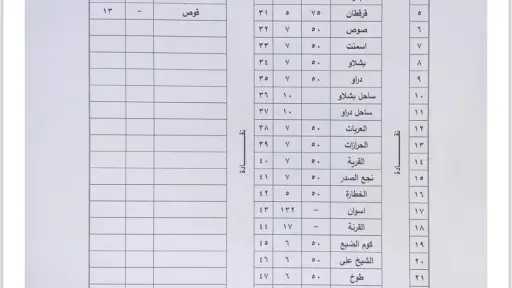 ٥ قرقطان ٧٥ ٥ ٣١ قوص - ١٣
٦ صوص ٥٠ ٧ ٣٢
٧ اسمنت ٥٠ ٧ ٣٣
٨ بشلاو ٥٠ ٧ ٣٤
٩ دراو ٥٠ ٧ ٣٥
١٠ ساحل بشلاو ١٠ ٣٦
١١ ساحل دراو ١٠ ٣٧
١٢ نقــادة العربات ٥٠ ٧ ٣٨ نقــادة
١٣ الحرازات ٥٠ ٧ ٣٩
١٤ القرية ٥٠ ٧ ٤٠
١٥ نجع الصدر ٥٠ ٧ ٤١
١٦ الخطارة ٥٠ ٥ ٤٢
١٧ اسوان - ١٣٢ ٤٣
١٨ القرنة - ١٧ ٤٤
١٩ كوم الضبع ٥٠ ٦ ٤٥
٢٠ الشيخ على ٥٠ ٦ ٤٦
٢١ طوخ ٥٠ ٦ ٤٧